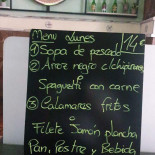 Menu Lunes 14€
① Sopa de pescado
② Arroz negro c/chipirones
Spaguetti con carne
③ Calamares frits
Filete Jamón plancha
Pan, Postre y Bebida